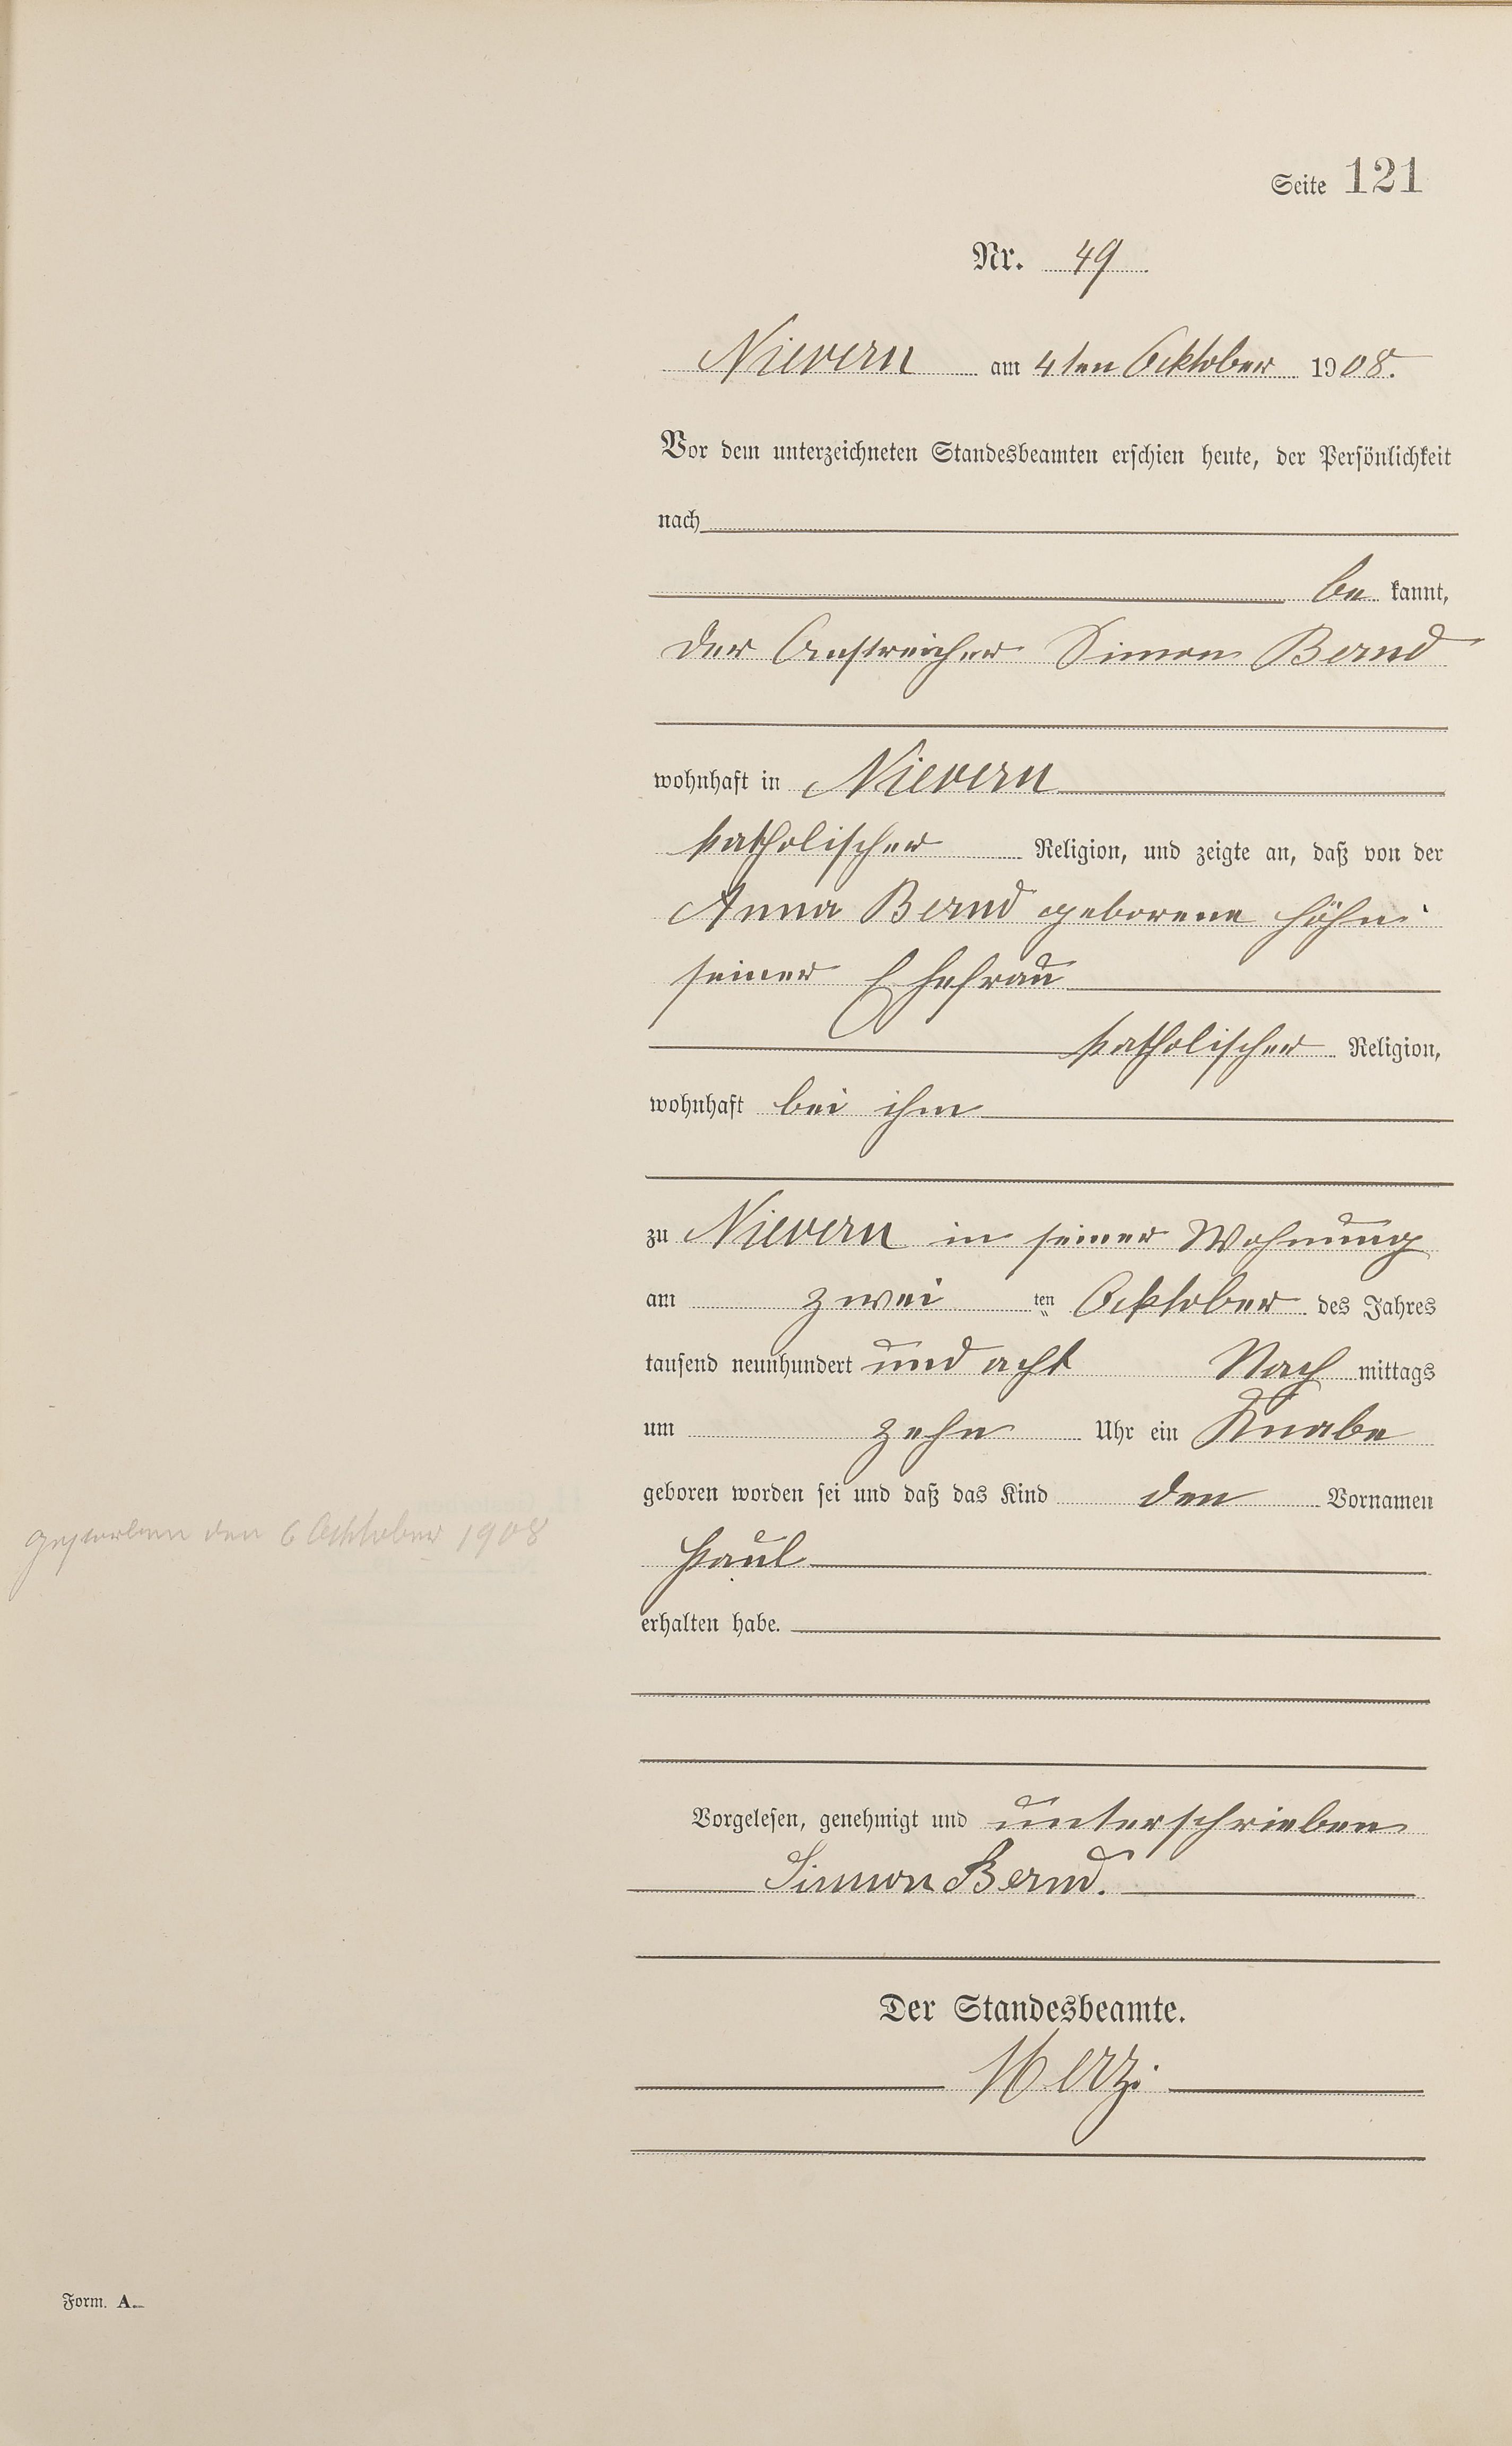 Seite 121
Nr. 49
Nievern am 4ten Ocktober 1908.
Vor dem unterzeichneten Standesbeamten erschien heute, der Persönlichkeit
nach
be kannt,
der Anstreicher Simon Bernd
wohnhaft in Nievern
katholischer Religion, und zeigte an, daß von der
Anna Bernd geborene Höhn
seiner Ehefrau
katholischer Religion,
wohnhaft bei ihm
zu Nievern in seiner Wohnung
am zwei ten Ocktober des Jahres
tausend neunhundert und acht Nach mittags
um zehn Uhr ein Knabe
geboren worden sei und daß das Kind den Vornamen
gestorben den 6 Ocktober 1908
Paul
erhalten habe.
Vorgelesen, genehmigt und unterschrieben
Simon Bernd.
Der Standesbeamte.
Merz.
Form. A.